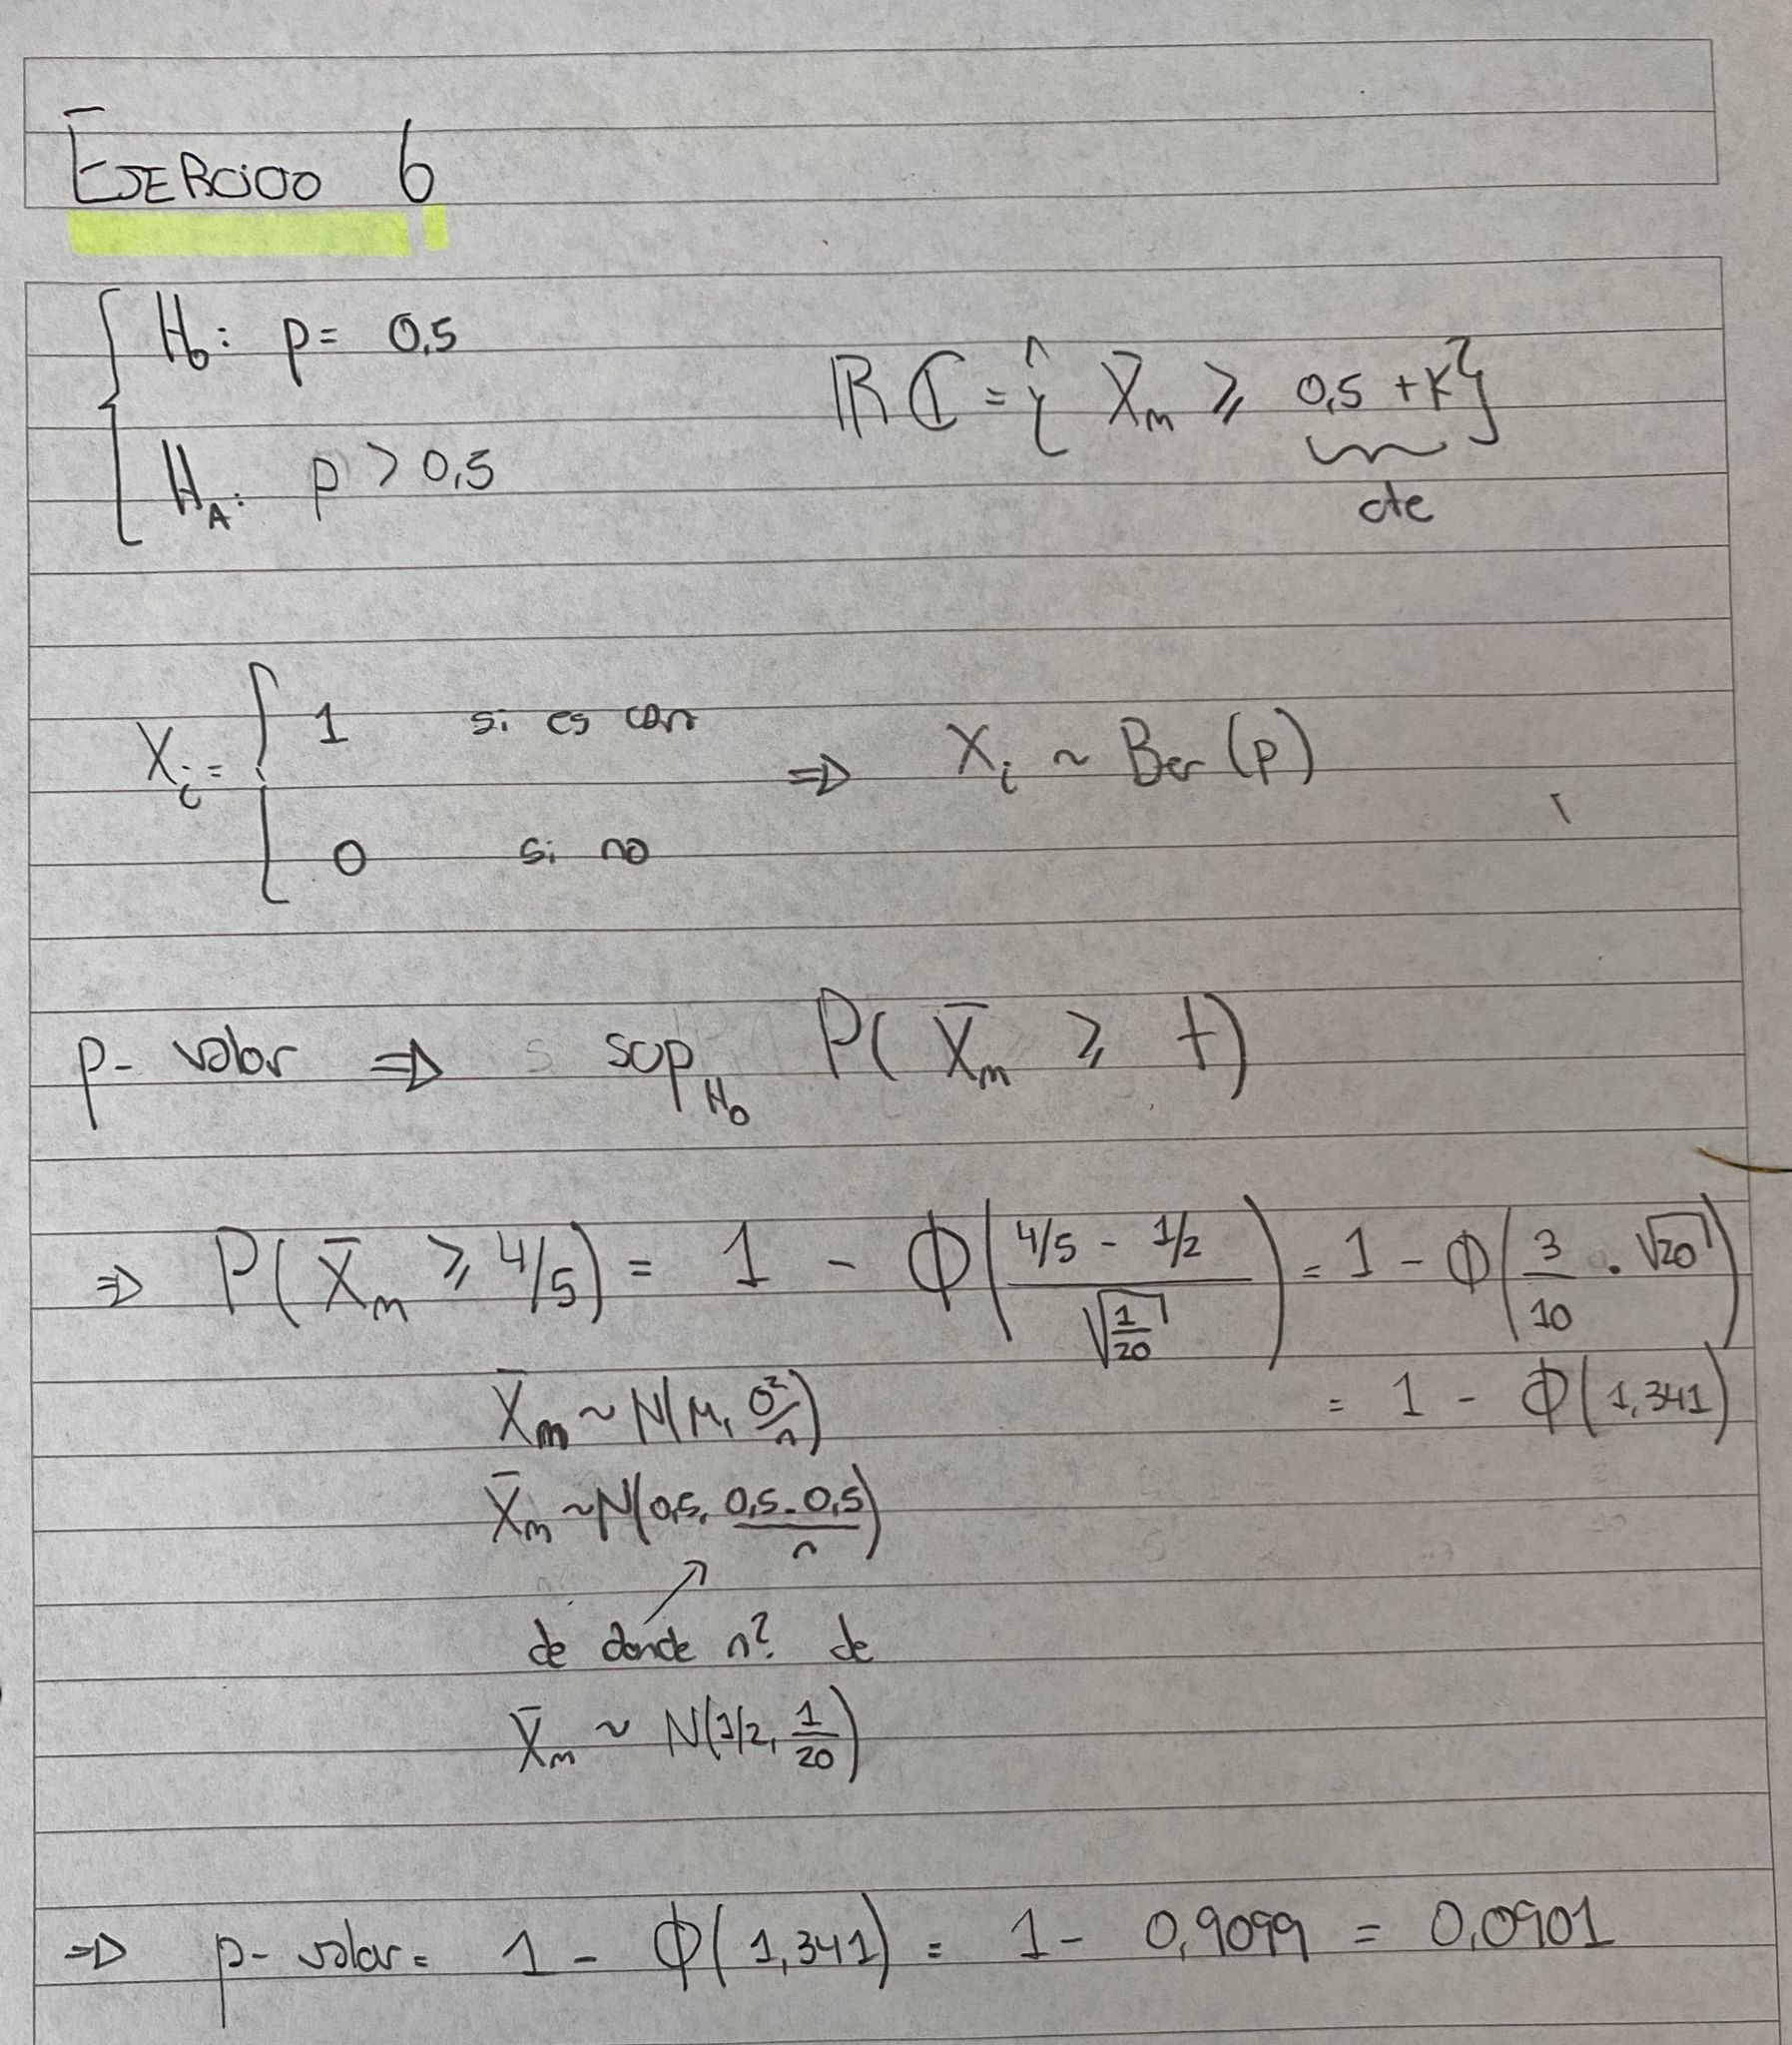 EJERCICIO 6
H₀: p = 0,5
ℝℂ = { X̄ₘ ⩾ 0,5 + K }
cte
Hₐ: p > 0,5
Xᵢ = { 1 si es cara
0 si no
⇒ Xᵢ ~ Ber (p)
p- valor ⇒ sup_H₀ P( X̄ₘ ⩾ t )
⇒ P( X̄ₘ ⩾ 4/5 ) = 1 - Φ( (4/5 - 1/2) / √(1/20) ) = 1 - Φ( 3/10 . √20 )
= 1 - Φ( 1,341 )
X̄ₘ ~ N( μ, σ²/n )
X̄ₘ ~ N( 0,5, 0,5 . 0,5 / n )
de donde n? de
X̄ₘ ~ N( 1/2, 1/20 )
⇒ p- valor = 1 - Φ( 1,341 ) = 1 - 0,9099 = 0,0901